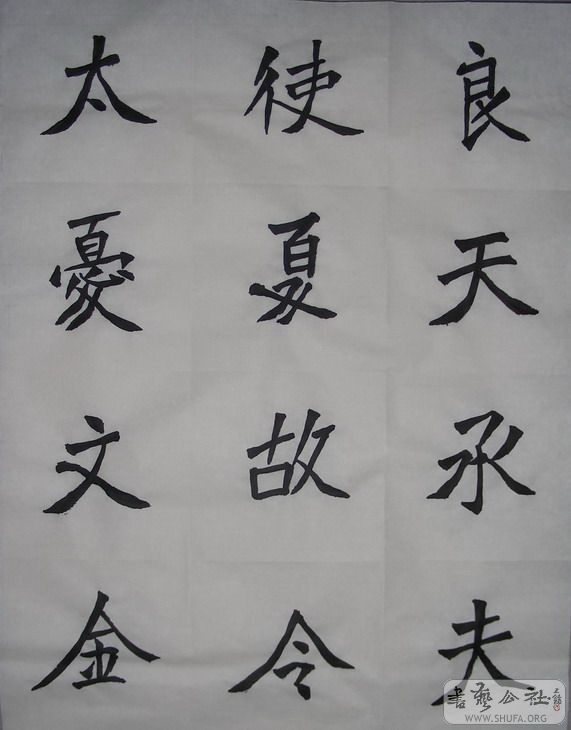 良天承夫
使夏故令
太憂文金
書藝公社
WWW.SHUFA.ORG